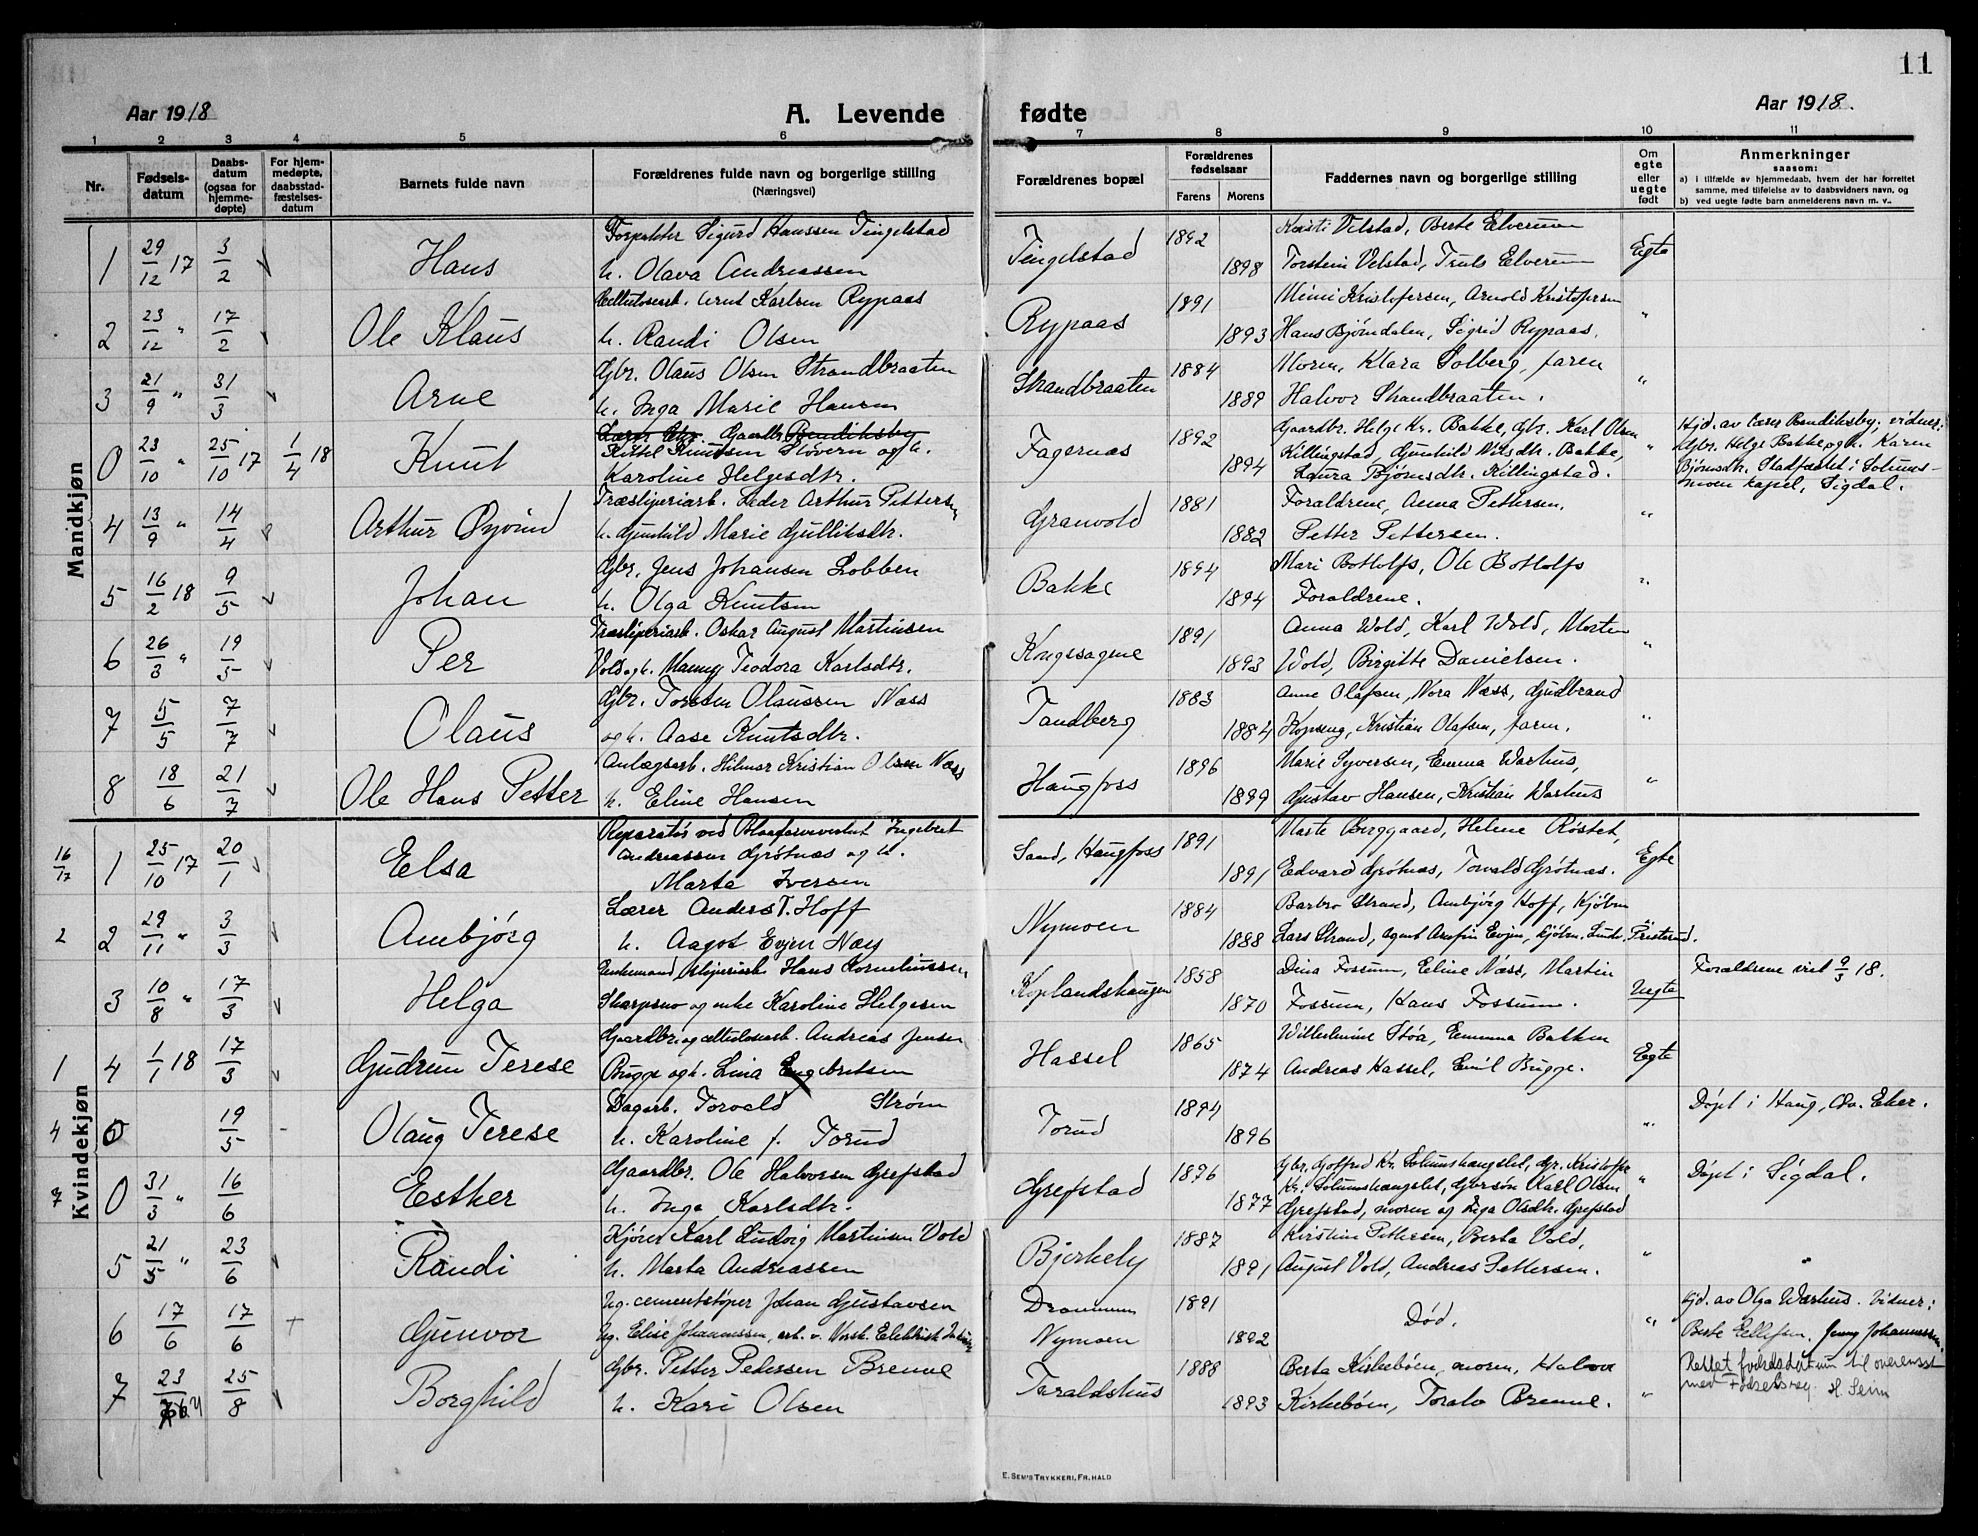 11
Aar 1918
A. Levende fødte
Aar 1918.
1 2 3 4 5 6 7 8 9 10 11
Nr.
Fødsels-
datum
Daabs-
datum
(ogsaa for
hjemme-
døpte)
For hjem-
medøpte,
daabsstad-
fæstelses-
datum
Barnets fulde navn
Forældrenes fulde navn og borgerlige stilling
(Næringsvei)
Forældrenes bopæl
Forældrenes
fødselsaar
Farens Morens
Faddernes navn og borgerlige stilling
Om
egte
eller
uegte
født
Anmerkninger
saasom:
a) i tilfælde av hjemmedaab, hvem der har forrettet
samme, med tilføielse av to daabsvidners navn, og
b) ved uegte fødte barn anmelderens navn m. v.
Mandkjøn
1 29/12 17 3/2 Hans Forpakter Sigurd Hanssen Tingelstad
h. Olava Andreassen Tingelstad 1892 1898
Kersti Velstad, Berte Elverum
Torstein Velstad, Truls Elverum Egte
2 23/12 " 17/2 Ole Klaus Cellulosearb. Arnt Karlsen Rypaas
h. Randi Olsen Rypaas 1891 1893
Mimi Kristofersen, Arnold Kristofersen
Hans Bjørndalen, Sigrid Rypaas. "
3 21/9 " 31/3 Arne Gbr. Olaus Olsen Strandbraaten
h. Inga Marie Hansen Strandbraaten 1884 1889
Moren, Klara Solberg, faren
Halvor Strandbraaten. "
0 23/10 " 25/10 17 1/4 18 Knut Gaardbr. Bendiksby
Kittel Knutsen Støvern og h.
Karoline Helgesdtr. Fagernas 1892 1894
Gaardbr. Helge Kr. Bakke, Gbr. Karl Olsen
Killingstad, Gunhild Nilsdtr. Bakke,
Laura Bjørnsdtr. Killingstad. "
Hjd. av Lærer Bendiksby; vidner:
Gbr. Helge Bakke og h. Karen
Bjørnsdtr. Stadfæstet i Solums-
moen kapel, Sigdal.
4 13/9 " 14/4 Arthur Øyvind Træsliperiarb. Peder Arthur Pettersen
h. Gunhild Marie Gulliksdtr. Granvold 1881 1882
Foraldrene, Anna Pettersen,
Petter Pettersen. "
5 16/2 18 9/5 Johan Gbr. Jens Johansen Lobben
h. Olga Knutsen Bakke 1894 1894
Mari Botholfs, Ole Botholfs
Foraldrene. "
6 26/3 " 19/5 Per Træsliperiarb. Oskar August Martinsen
Vold og h. Manny Teodora Karlsdtr. Kongssagene 1891 1893
Anna Wold, Karl Wold, Morten
Wold, Birgitte Danielsen. "
7 5/5 7/7 Olaus Gbr. Torsten Olaussen Næss
og h. Aase Knutsdtr. Tandberg 1883 1884
Anne Olafsen, Nora Næss, Gudbrand
Kopseng, Kristian Olafsen, faren. "
8 18/6 21/7 Ole Hans Petter Anlægsarb. Hilmar Kristian Olsen Næss
h. Eline Hansen Haugfoss 1896 1899
Marie Syversen, Emma Warhus,
Gustav Hansen, Kristian Warhus "
Kvindekjøn
16/17 1 25/10 17 20/1 Elsa Reparatør ved Blaafarveverket Ingebret
Andreassen Grøtnæs og h.
Marta Iversen Sand, Haugfoss 1891 1891
Marte Berggaard, Helene Røstet,
Edvard Grøtnæs, Torvald Grøtnæs. Egte
2 2 29/11 " 3/3 Ambjørg Lærer Anders T. Hoff
h. Aagot Evjen Næss Nymoen 1884 1888
Barbro Strand, Ambjørg Hoff, Kjøbm
Lars Strand, agent Evjen, kjøbm.
3 10/8 " 17/3 Helga Enkemand, sliperiarb. Hans Korneliussen
Skarpsno og enke Karoline Helgesen Koplandshaugen 1858 1870
Dina Fossum, Eline Næss, Martin
Fossum, Hans Fossum. Uegte
Forældrene viet 9/3 18.
1 4 1/1 18 17/3 Gudrun Terese Gaardbr. og cellulosearb. Andreas Jensen
Brugge og h. Lina Engebretsen Hassel 1865 1874
Willhelmine Stoa, Emma Bakken
Andreas Hassel, Emil Brugge. Egte
4 0 19/5 - Olaug Terese Dagarb. Torvald Strøm
h. Karoline f. Torud Torud 1894 1896 "
Døpt i Haug, Øv. Eker.
7 0 31/3 " 16/6 Esther Gaardbr. Ole Halvorsen Grefstad
h. Inga Karlsdtr. Grefstad 1876 1877
Gbr. Gotfred Kr. Solumshaugslet, Gr. Kristoffer
Kr. Solumshaugslet, Gbrsøn Karl Olsen
Grefstad, moren og Inga Olsdtr. Grefstad "
Døpt i Sigdal.
5 21/5 " 23/6 Randi Kjører Karl Ludvig Martinsen Vold
h. Marta Andreassen Bjerkely 1887 1891
Kirstine Pettersen, Berta Vold,
August Vold, Andreas Pettersen. " "
6 17/6 17/6 + Gunvor Ug. cementstøper Johan Gustavsen
Ug. Elise Johannessen, arb. v. Norsk Elektrisk Drammen
Nymoen 1891 1892
Død. " "
Hjd. av Olga Warhus. Vidner:
Berte Ellefsen, Jenny Johannessen.
7 23/ 25/8 Borghild Gbr. Petter Pedersen Brenne
h. Kari Olsen Taraldshus 1888 1893
Berta Kirkebøen, moren, Halvor
Kirkebøen, Toralv Brenne. "
Rettet fødselsdatum til overensst
med Fødselsreg. H. Seim
E. SEM'S TRYKKERI, FR. HALD